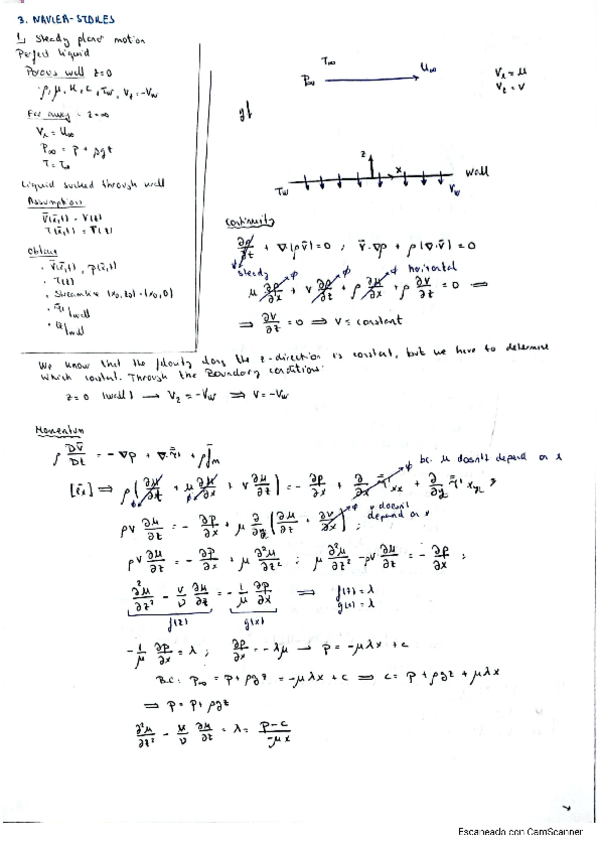 3. NAVIER-STOKES
1. Steady planar motion
Perfect liquid
Porous wall z=0
ρ, μ, K, c, Tw, Vz=-Vw
Far away z=∞
Vx = U∞
P∞ = P + ρgz
T = T∞
Liquid sucked through wall
Assumptions
V̄(x̄,t) = V(z)
T(x̄,t) = T(z)
Obtain
· V̄(x̄,t), p(x̄,t)
· T(z)
· Streamline (x0,z0) - (x0,0)
· wall
· wall
T∞
P∞ U∞
Vx = u
Vz = v
g↓
z
x
wall
Tw Vw
Continuity
∂ρ/∂t + ∇(ρv̄) = 0 ; v̄·∇ρ + ρ(∇·v̄) = 0
steady
u ∂ρ/∂x + v ∂ρ/∂z + ρ ∂u/∂x + ρ ∂v/∂z = 0 ⟹
horizontal
⟹ ∂v/∂z = 0 ⟹ v = constant
We know that the velocity along the z-direction is constant, but we have to determine
which constant. Through the Boundary conditions:
z=0 (wall) → Vz = -Vw ⟹ V = -Vw
Momentum
ρ Dv̄/Dt = -∇p + ∇·τ̄' + ρf̄m
bc. u doesn't depend on x
[ēx] ⟹ ρ(∂u/∂t + u ∂u/∂x + v ∂u/∂z) = -∂p/∂x + ∂/∂x τ'xx + ∂/∂z τ'xz ;
ρv ∂u/∂z = -∂p/∂x + μ ∂/∂z (∂u/∂z + ∂v/∂x) ;
v doesn't
depend on x
ρv ∂u/∂z = -∂p/∂x + μ ∂²u/∂z² ; μ ∂²u/∂z² - ρv ∂u/∂z = -∂p/∂x ;
∂²u/∂z² - v/ν ∂u/∂z = -1/μ ∂p/∂x ⟹ f(z) = λ
g(x) = λ
f(z) g(x)
-1/μ ∂p/∂x = λ ; ∂p/∂x = -λμ → p = -μλx + c
B.C: P∞ = p + ρgz = -μλx + c ⟹ c = p + ρgz + μλx
⟹ p = P + ρgz
∂²u/∂z² - v/ν ∂u/∂z = λ = p-c/-μx
Escaneado con CamScanner